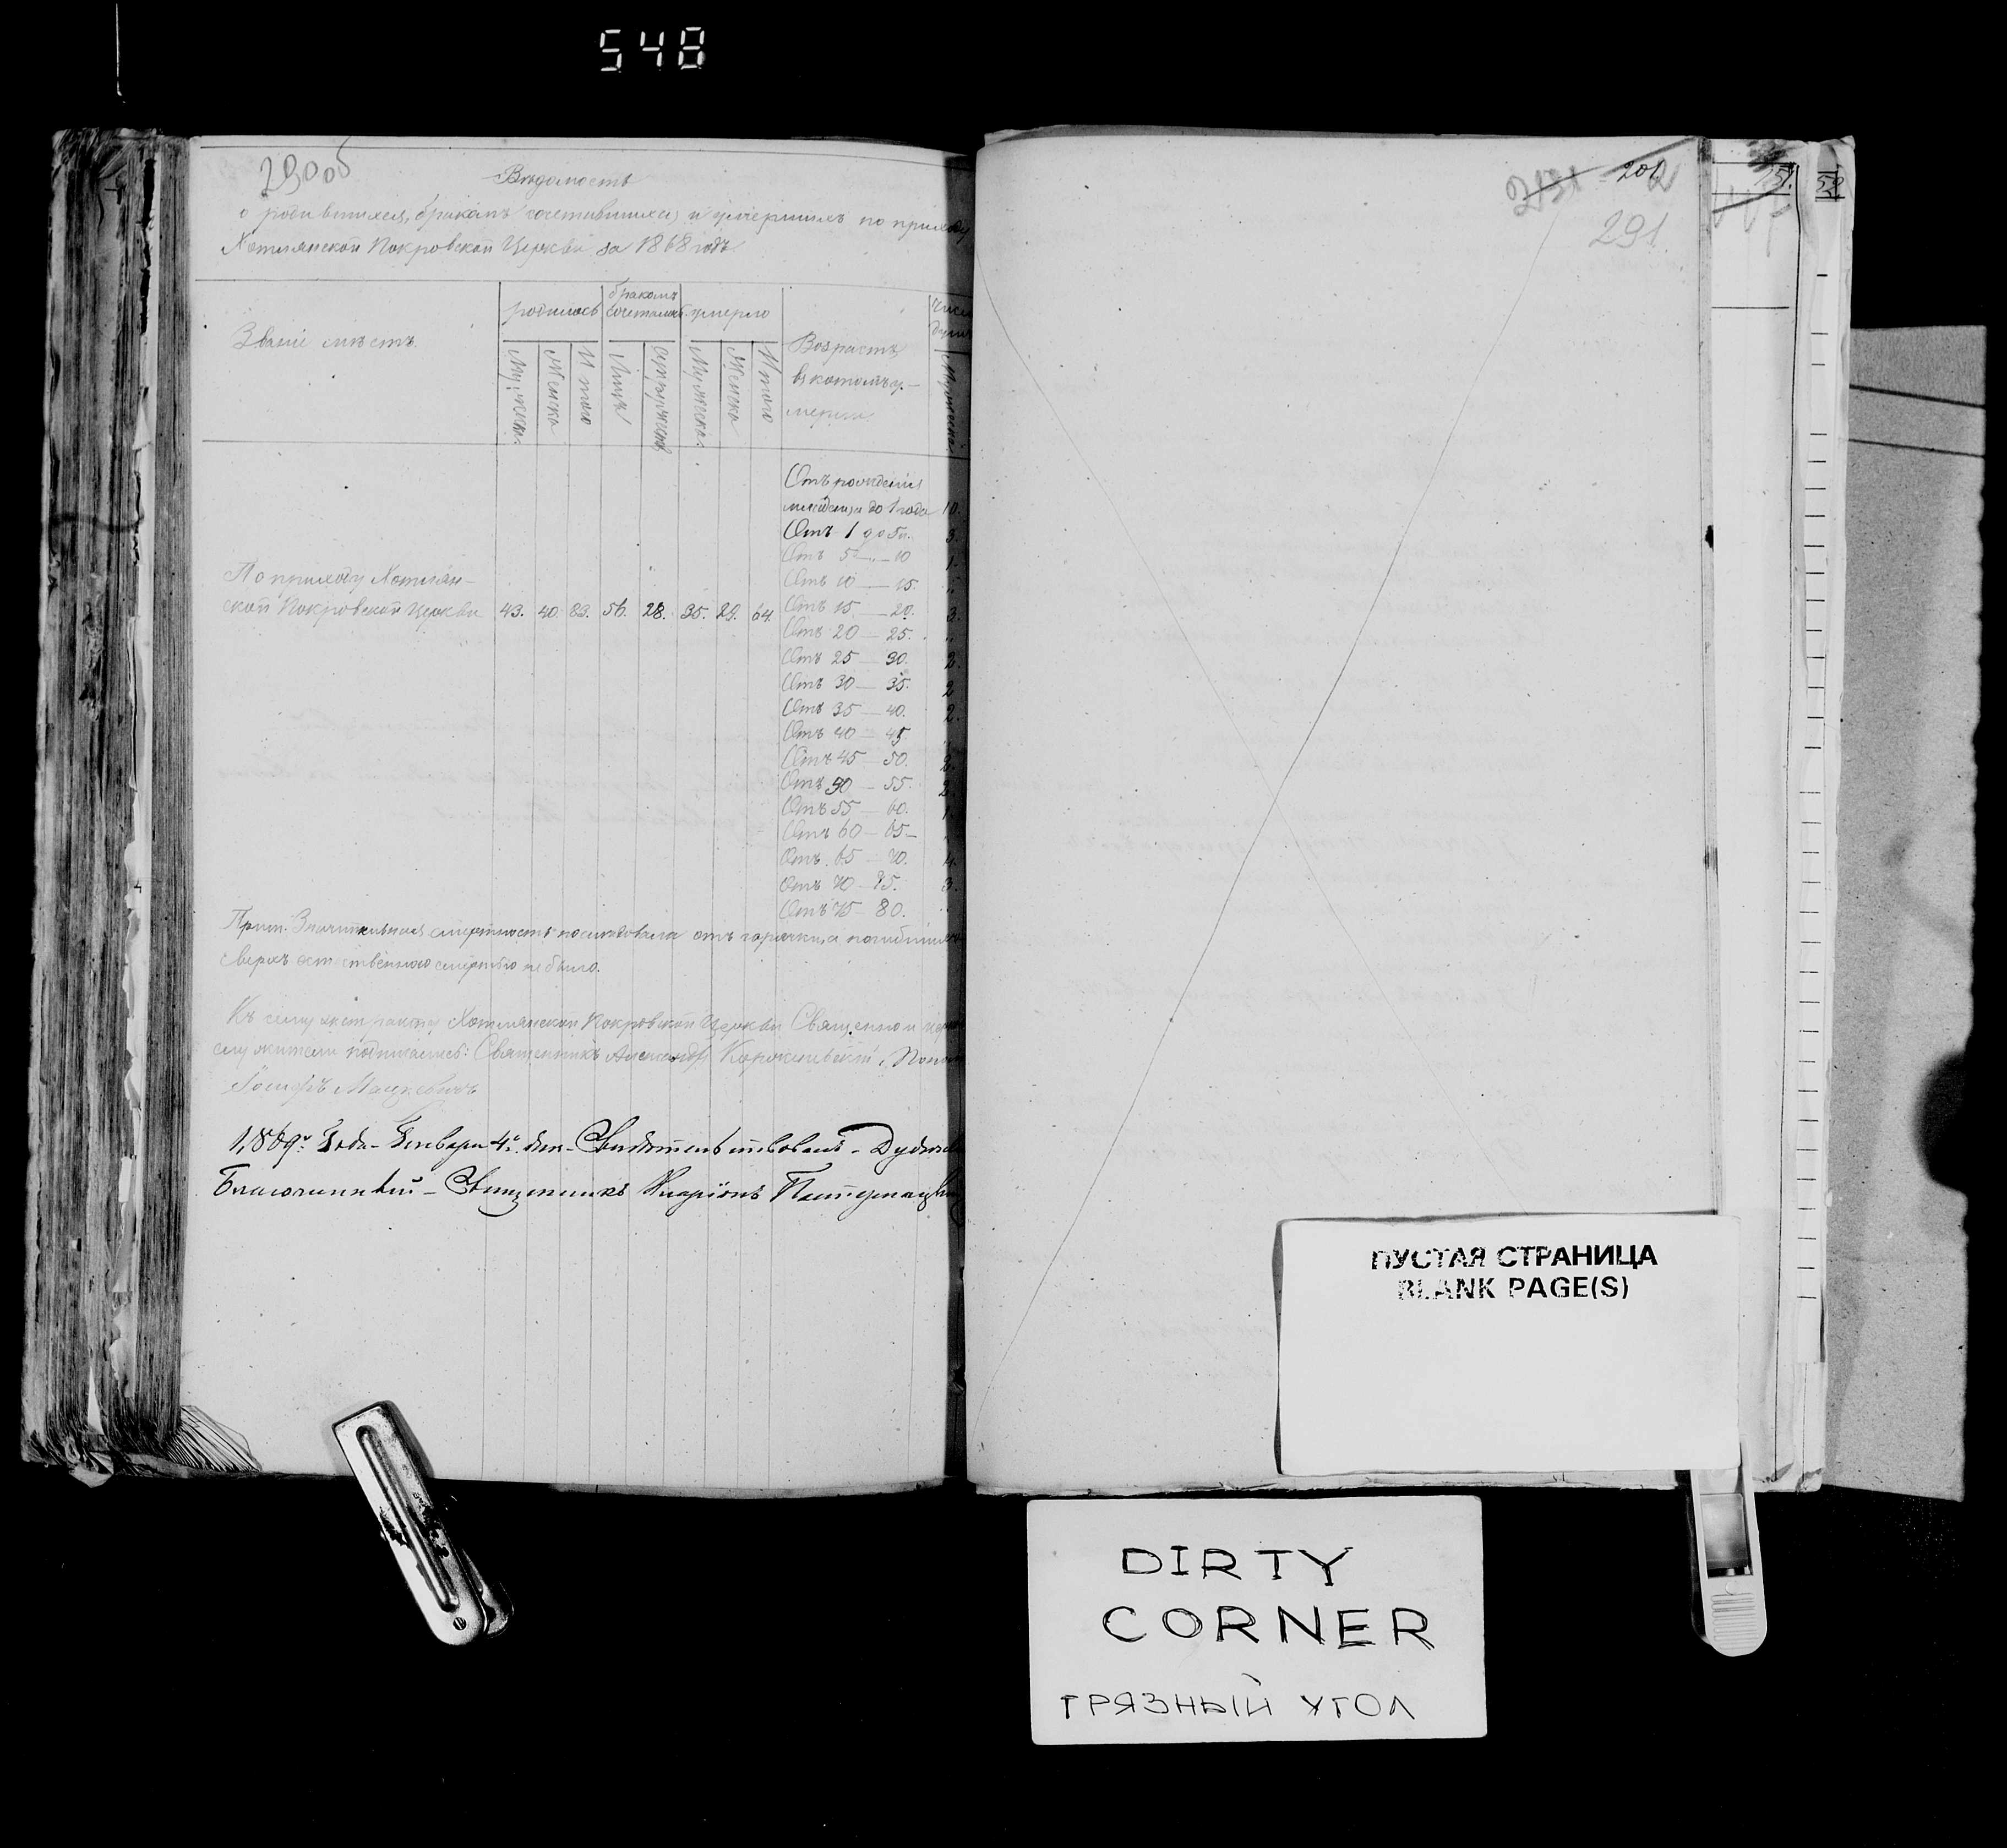 548
290об
Вѣдомость
о родившихся, бракомъ сочетавшихся, и умершихъ по приходу
Хотлянской Покровской Церкви за 1868 годъ
Званіе мѣстъ.
родилось
бракомъ сочеталось
умерло
Возрастъ
въ которомъ у-
мерли
Число
душъ
Мужеска.
Женска
Итого
Лицъ
Супружествъ
Мужеска.
Женска
Итого
Мужеска.
Отъ рожденія
младенца до 1 года 10.
Отъ 1 до 5л. 3.
Отъ 5 — 10 1.
Отъ 10 — 15. "
По приходу Хотлян-
ской Покровской Церкви 43. 40. 83. 56. 28. 35. 29. 64. Отъ 15 — 20. 3.
Отъ 20 — 25. "
Отъ 25 — 30. 2.
Отъ 30 — 35. 2
Отъ 35 — 40. 2.
Отъ 40 — 45
Отъ 45 — 50. 2.
Отъ 50 — 55. 2.
Отъ 55 — 60. 1.
Отъ 60 — 65 —
Отъ 65 — 70. 4.
Отъ 70 — 75. 3.
Отъ 75 — 80. "
Прим. Значительная смертность послѣдовала отъ горячки, а погибшихъ
сверхъ естественною смертью не было.
Къ сему экстракту Хотлянской Покровской Церкви Священно и
служители подписались: Священникъ Александръ
Іосифъ Мацкевичъ
1869го Года Генваря 4го дня Свидѣтельствовалъ
Благочинный Священникъ Иларіонъ
201
291
151.
52
ПУСТАЯ СТРАНИЦА
BLANK PAGE(S)
DIRTY
CORNER
ГРЯЗНЫЙ УГОЛ